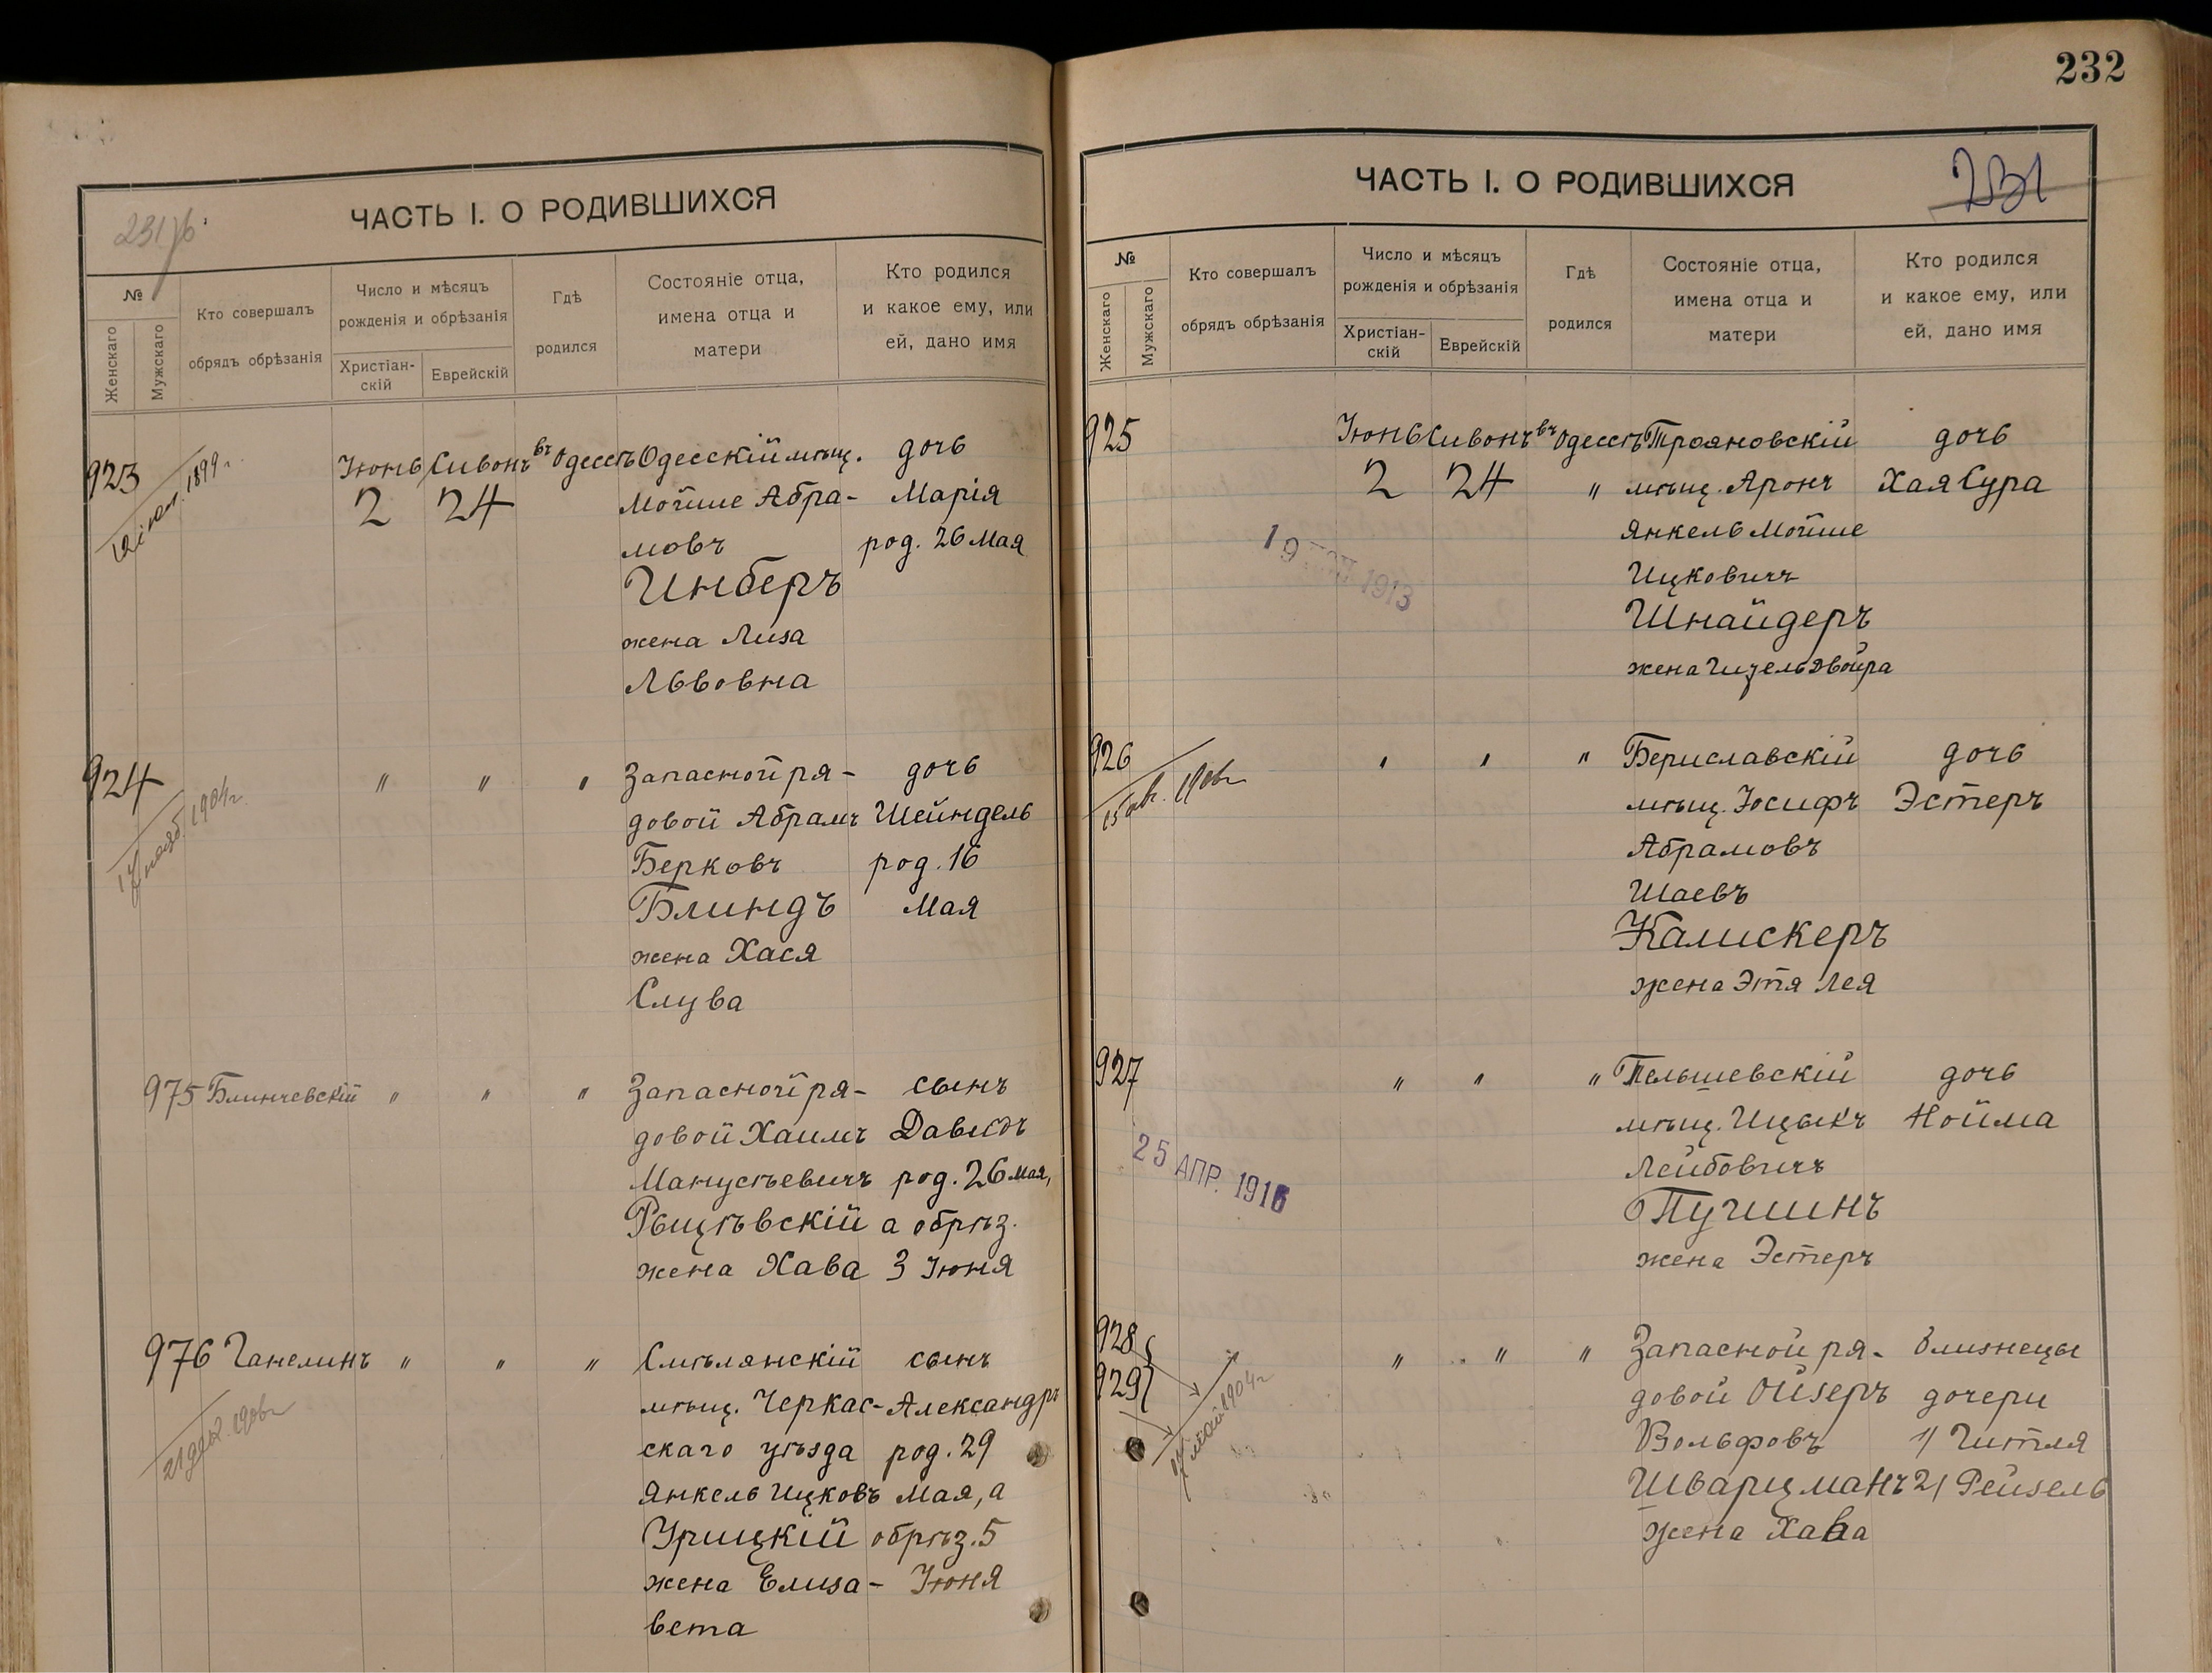 ЧАСТЬ I. О РОДИВШИХСЯ
№
Женскаго
Мужскаго
Кто совершалъ
обрядъ обрѣзанія
Число и мѣсяцъ
рожденія и обрѣзанія
Христіан-
скій
Еврейскій
Гдѣ
родился
Состояніе отца,
имена отца и
матери
Кто родился
и какое ему, или
ей, дано имя
923
1899 г.
Іюнь
2
Сивонъ
24
въ Одессѣ
Одесскій мѣщ.
Мойше Абра-
мовъ
Инберъ
жена Лиза
Львовна
дочь
Марія
род. 26 Мая
924
17 нояб. 1904 г.
"
"
"
Запасной ря-
довой Абрамъ
Берковъ
Блиндъ
жена Хася
Слува
дочь
Шейндель
род. 16
Мая
975
Блинчевскій
"
"
"
Запасной ря-
довой Хаимъ
Манусѣевичъ
Рыщѣвскій
жена Хава
сынъ
Давидъ
род. 26 мая,
а обрѣз.
3 Іюня
976
Ганелинъ
21 дек. 1906 г.
"
"
"
Смѣлянскій
мѣщ. Черкас-
скаго уѣзда
Янкель Ицковъ
Урицкій
жена Елиза-
вета
сынъ
Александръ
род. 29
Мая, а
обрѣз. 5
Іюня
232
ЧАСТЬ I. О РОДИВШИХСЯ
231
№
Женскаго
Мужскаго
Кто совершалъ
обрядъ обрѣзанія
Число и мѣсяцъ
рожденія и обрѣзанія
Христіан-
скій
Еврейскій
Гдѣ
родился
Состояніе отца,
имена отца и
матери
Кто родился
и какое ему, или
ей, дано имя
925
19 1913
Іюнь
2
Сивонъ
24
въ Одессѣ
"
Трояновскій
мѣщ. Аронъ
Янкель Мойше
Ицковичъ
Шнайдеръ
жена Двойра
дочь
Хая Сура
926
15 авг. 1906 г.
"
"
"
Бериславскій
мѣщ. Іосифъ
Абрамовъ
Шаевъ
Калискеръ
жена Этя Лея
дочь
Эстеръ
927
25 АПР. 1916
"
"
"
Тельшевскій
мѣщ. Ицыкъ
Лейбовичъ
Пучинъ
жена Эстеръ
дочь
Нойма
928
929
май 1904 г
"
"
"
Запасной ря-
довой Ойзеръ
Вольфовъ
Шварцманъ
жена Хава
близнецы
дочери
1/ Гитля
2/ Рейзель